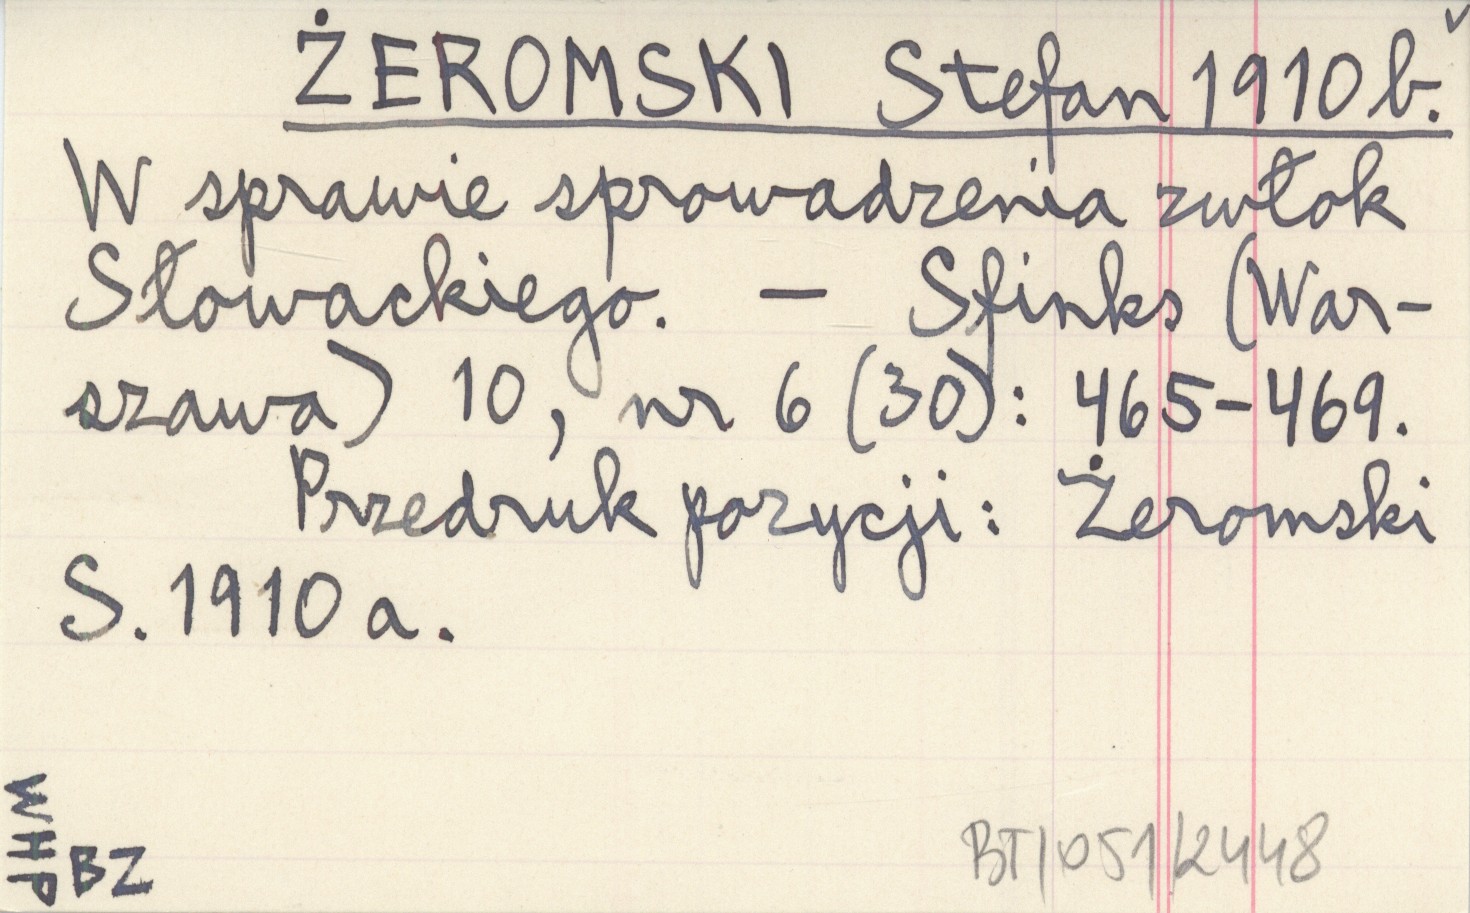 ŻEROMSKI Stefan 1910 b.
W sprawie sprowadzenia zwłok
Słowackiego. — Sfinks (War-
szawa) 10, nr 6 (30): 465-469.
Przedruk pozycji: Żeromski
S. 1910 a.
WHP
BZ
BT/051/2448